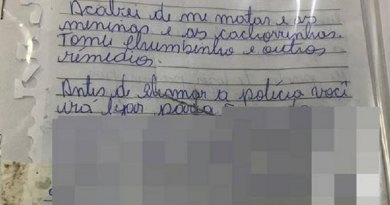 Acabei de me matar e as
meninas e as cachorrinhas.
Tomei chumbinho e outros
remédios.
Antes de chamar a polícia você
irá ligar para